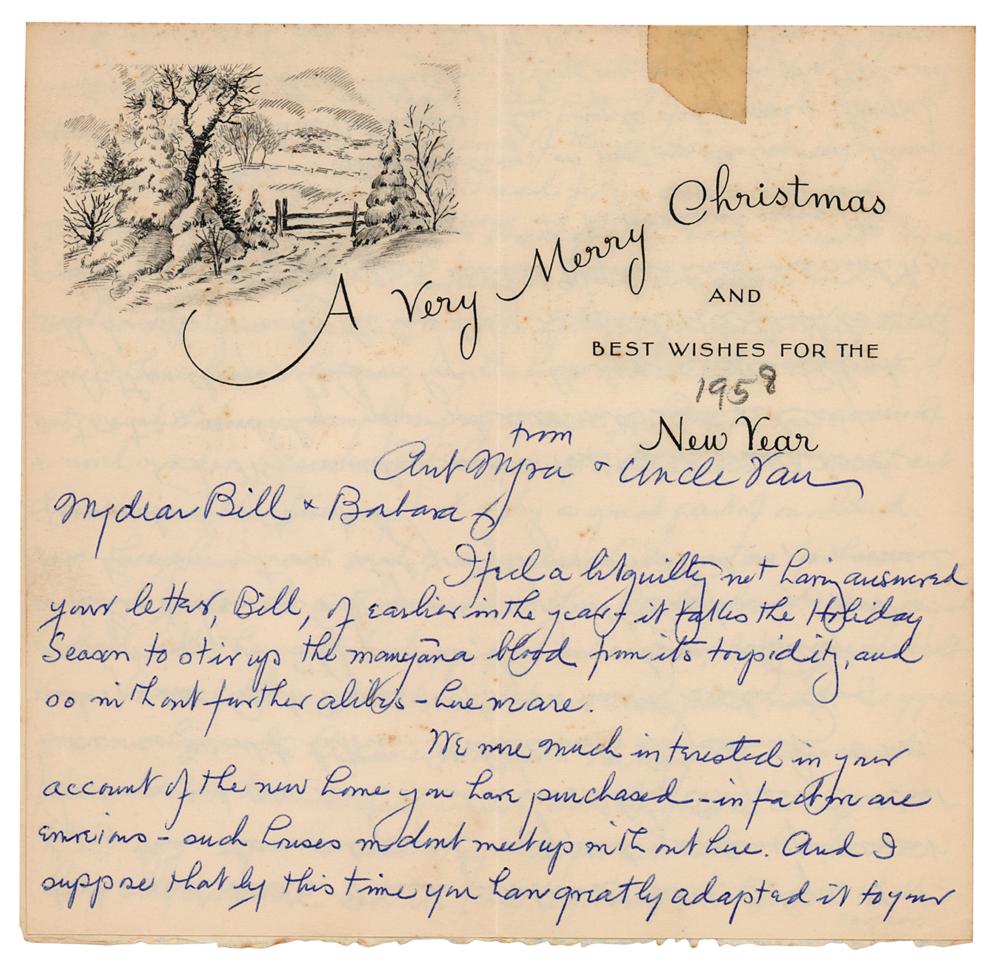 A Very Merry Christmas
AND
BEST WISHES FOR THE
1958
New Year
from
Aunt Myra + Uncle Van
My dear Bill + Barbara
I feel a bit guilty not having answered
your letter, Bill, of earlier in the year - it takes the Holiday
Season to stir up the manyana blood from its torpidity, and
so without further alibis - here we are.
We were much interested in your
account of the new home you have purchased - in fact we are
envious - such houses we dont meet up with out here. And I
suppose that by this time you have greatly adapted it to your